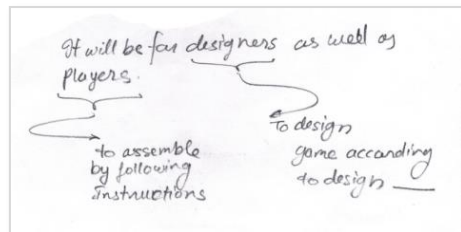 It will be for designers as well as
players.
to assemble
by following
instructions
To design
game according
to design ___